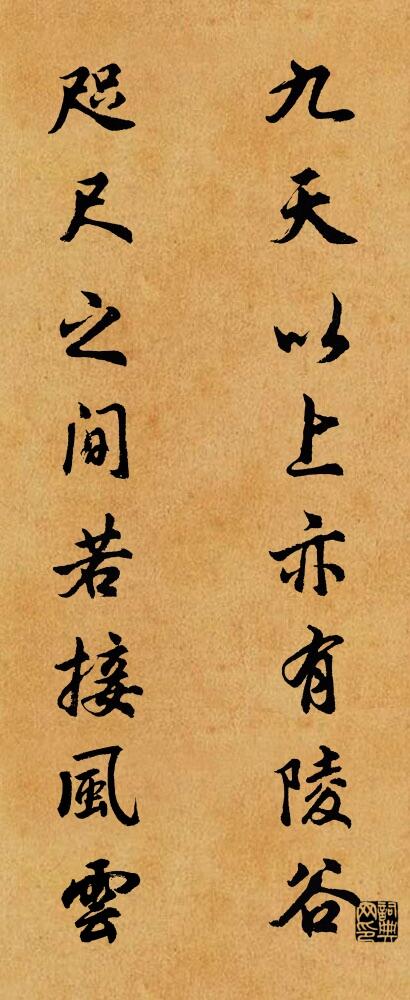 九天以上亦有陵谷
咫尺之间若接風雲
詞典网印